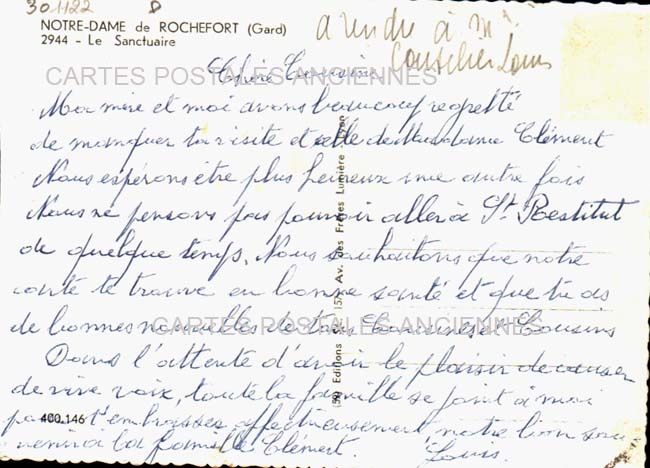 301122
NOTRE-DAME de ROCHEFORT (Gard)
2944 - Le Sanctuaire
a rendre à Mr
Conseiller Louis
CARTES POSTALES ANCIENNES
Chère Cousine
Ma mère et moi avons beaucoup regretté
de manquer ta visite et celle de Madame Clément
Nous espérons être plus heureux une autre fois
Nous ne pensons pas pouvoir aller à St Restitut
de quelque temps. Nous souhaitons que notre
carte te trouve en bonne santé et que tu as
de bonnes nouvelles de tes Cousines et Cousins
CARTES POSTALES ANCIENNES
Dans l'attente d'avoir le plaisir de causer
de vive voix, toute la famille se joint à moi
pour t'embrasser affectueusement, notre bon sou
venir à la famille Clément. Louis.
400.146
Editions (57) Av. des Frères Lumière Lyon